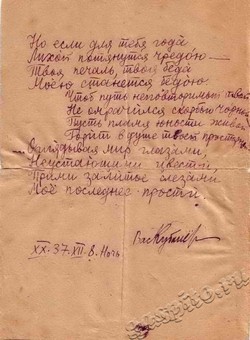 Но если для тебя года
Лихой потянутся чредою—
Твоя печаль, твоя беда
Моею станется бедою
Чтоб путь неповторимый твой
Не омрачился скорбью черной
Пусть пламя юности живой
Горит в душе твоей просторной
Оглядывая мир глазами,
Неустающими цвести,
Прими залитое слезами
Моё последнее прости
Вас Кубанёв
XX. 37. XII. В. Ночь